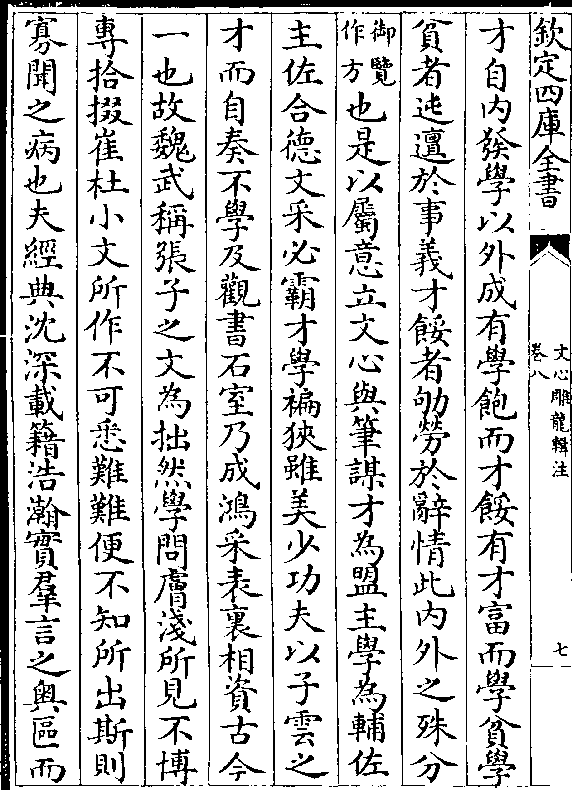 欽定四庫全書
文心雕龍輯注
卷八
七
才自內發學以外成有學飽而才餒有才富而學貧學
貧者迍邅於事義才餒者劬勞於辭情此內外之殊分
御覽
作方
也是以屬意立文心與筆謀才為盟主學為輔佐
主佐合德文采必霸才學褊狹雖美少功夫以子雲之
才而自奏不學及觀書石室乃成鴻采表裏相資古今
一也故魏武稱張子之文為拙然學問膚淺所見不博
專拾掇崔杜小文所作不可悉難難便不知所出斯則
寡聞之病也夫經典沈深載籍浩瀚實羣言之奧區而